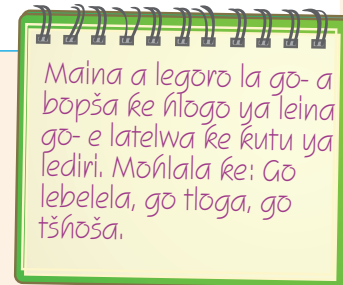 Maina a legoro la go- a
bopša ke hlogo ya leina
go- e latelwa ke kutu ya
lediri. Mohlala ke: Go
lebelela, go tloga, go
tšhoša.